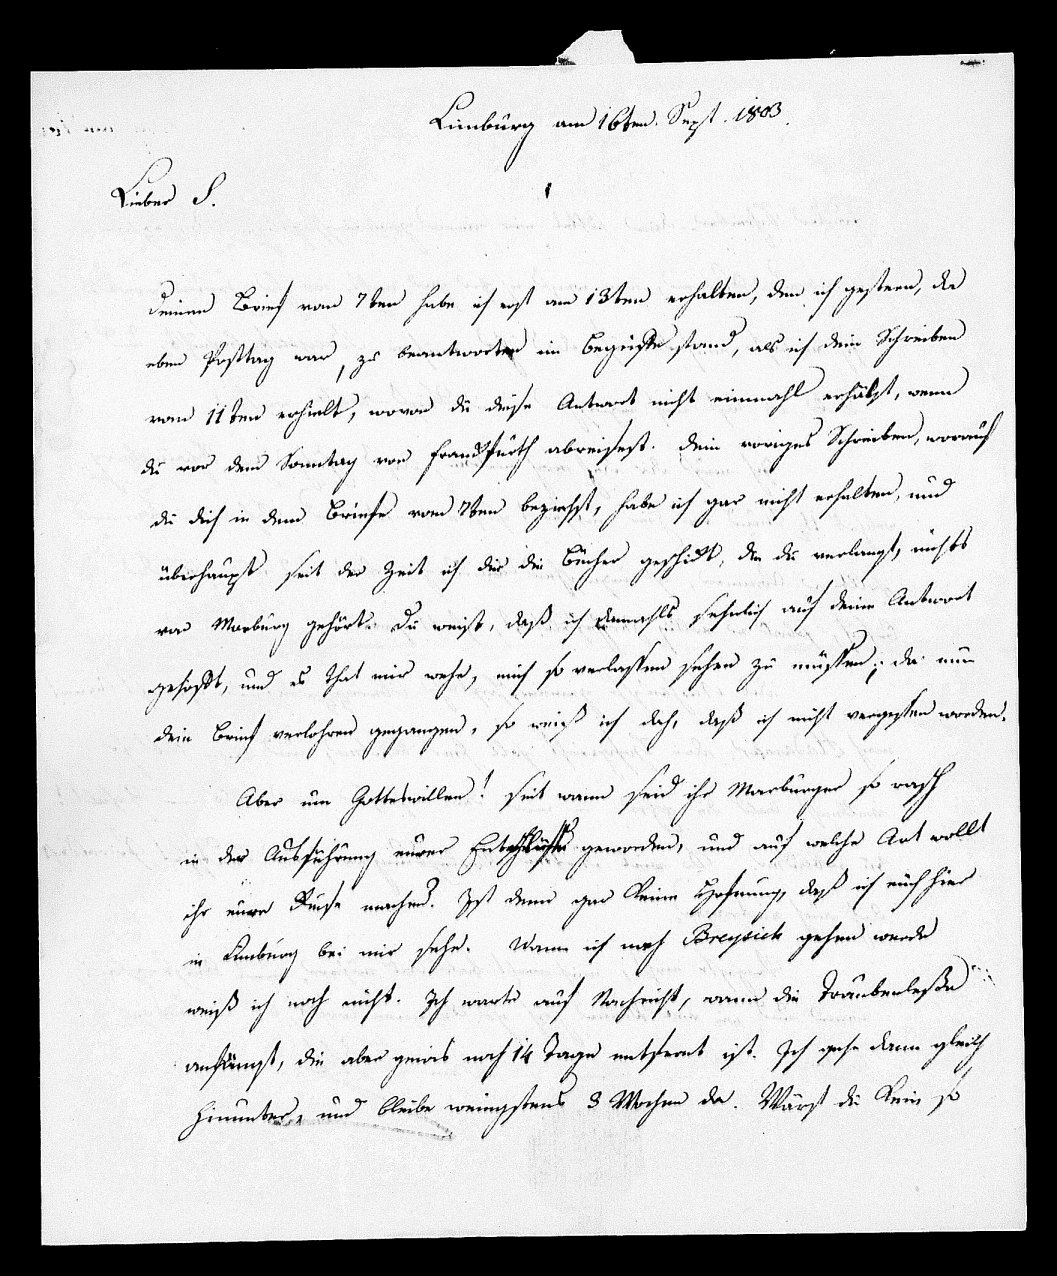 Limburg am 16ten. Sept. 1803.
Lieber S.
deinen Brief vom 7ten habe ich erst am 13ten erhalten, den ich gestern, da
eben Posttag war, zu beantworten im Begriffe stand, als ich dein Schreiben
vom 11ten erhielt, wovon du diese Antwort nicht einmahl erhälst, wenn
du vor dem Sonntag von Frankfurth abreisest. dein voriges Schreiben, worauf
du dich in dem Briefe vom 7ten beziehst, habe ich gar nicht erhalten, und
überhaupt seit der Zeit ich dir die Bücher geschickt, die du verlangst, nichts
von Marburg gehört. Du weist, daß ich damahls sehnlich auf deine Antwort
gehofft, und es that mir wehe, mich so verlassen sehen zu müssen; da nun
dein Brief verlohren gegangen, so weiß ich doch, daß ich nicht vergessen worden.
Aber um Gotteswillen! seit wann seid ihr Marburger so rasch
in der Ausführung eurer Entschlüsse geworden, und auf welche Art wollt
ihr eure Reise machen. Ist denn gar keine Hofnung, daß ich euch hier
in Limburg bei mir sehe. Wann ich nach Breysich gehen werde
weiß ich noch nicht. Ich warte auf Nachricht, wann die Traubenlese
anfängt, die aber gewis noch 14 Tage entfernt ist. Ich gehe dann gleich
hinunter, und bleibe wenigstens 3 Wochen da. Wärst du kein so